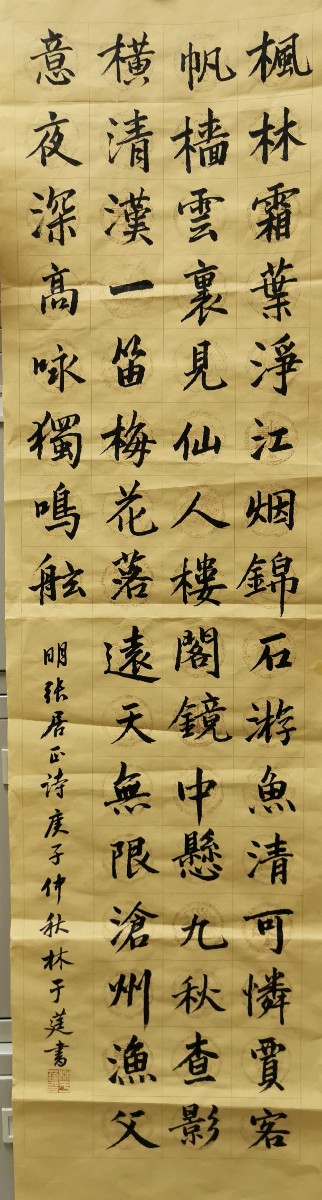 楓林霜葉淨江烟錦石游魚清可憐賈客
帆檣雲裏見仙人樓閣鏡中懸九秋查影
橫清漢一笛梅花落遠天無限滄州漁父
意夜深高咏獨鳴舷
明張居正詩庚子仲秋林于莛書